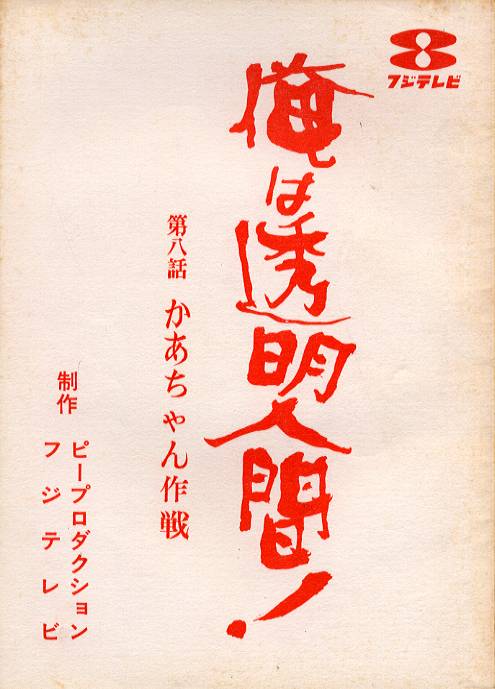 フジテレビ
俺は透明人間!
第八話 かあちゃん作戦
制作
ピープロダクション
フジテレビ